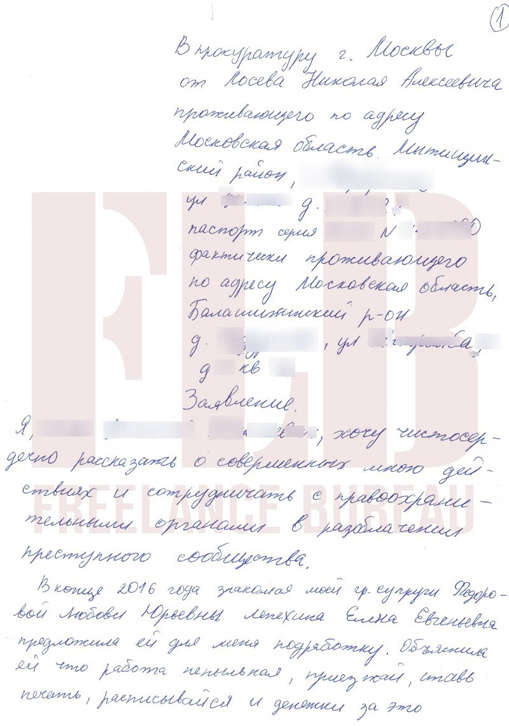 1
В прокуратуру г. Москвы
от Лосева Николая Алексеевича
проживающего по адресу
Московская область. Мытищин-
ский район,
ул д.
паспорт серия N
фактически проживающего
по адресу Московская область,
Балашихинский р-он
д. , ул
д кв
Заявление.
Я, , хочу чистосер-
дечно рассказать о совершенных мною дей-
ствиях и сотрудничать с правоохрани-
тельными органами в разоблачении
преступного сообщества.
В конце 2016 года знакомая моей гр. супруги Федоро-
вой Любови Юрьевны Лепехина Елена Евгеньевна
предложила ей для меня подработку. Объяснила
ей что работа непыльная, приезжай, ставь
печать, расписывайся и денежки за это
FLB
FREELANCE BUREAU